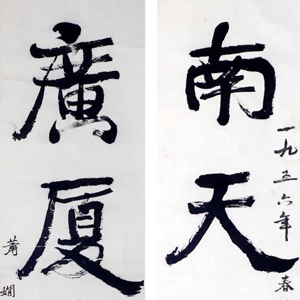 南天
一九五六年春
廣厦
萧娴